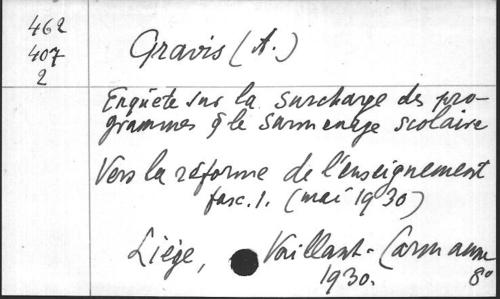 462
407
2
Gravis (A.)
Enquête sur la surcharge des pro-
grammes & le surmenage scolaire
Vers la réforme de l'enseignement
fasc. 1. (mai 1930)
Liége, Vaillant-Carmanne
1930. 8°